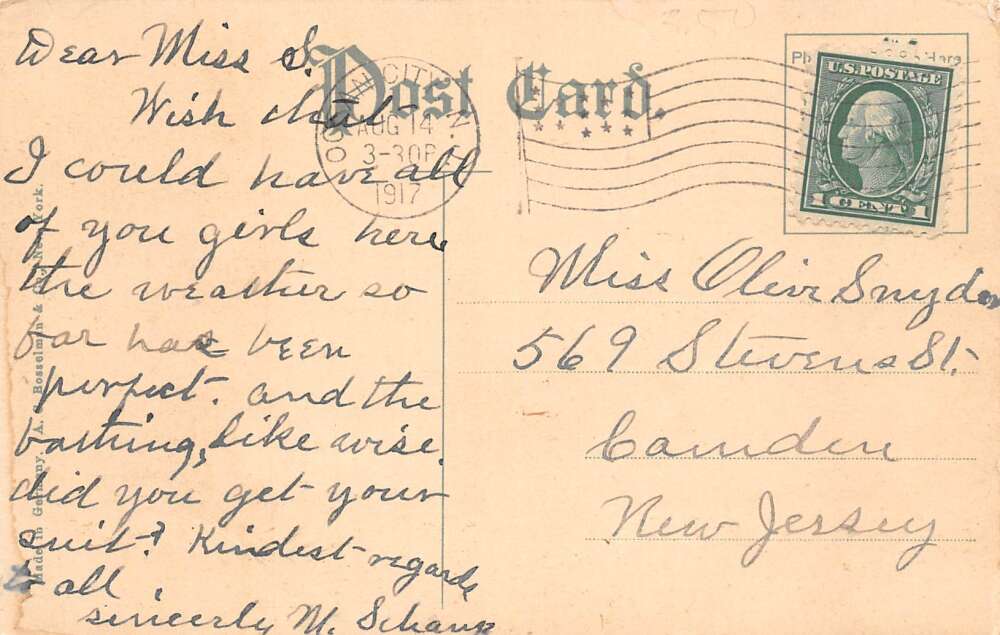 Dear Miss S.
Wish that
I could have all
of you girls here
the weather so
far has been
perfect. and the
bathing, like wise.
did you get your
suit? Kindest regards
to all.
sincerely M.
Post Card.
OCEAN CITY N.J.
AUG 14
3-30P
1917
U.S. POSTAGE
1 CENT 1
Miss Olive Snyder
569 Stevens St.
Camden
New Jersey
Made in Germany. A. C. Bosselman & Co., New York.